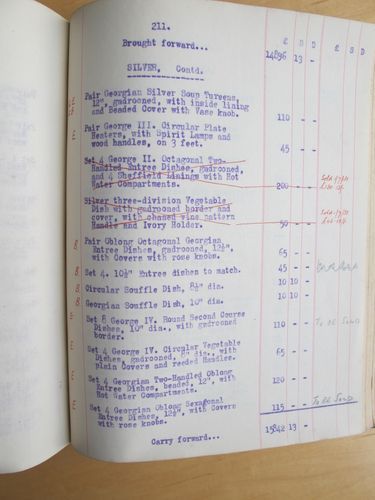 211.
£ S D £ S D
Brought forward... 14896 13 -
SILVER, Contd.
Pair Georgian Silver Soup Tureens,
12", gadrooned, with inside lining
and Beaded Cover with Vase knob. 110 - -
E Pair George III. Circular Plate
Heaters, with Spirit Lamps and
wood handles, on 3 feet. 45 - -
Set 4 George II. Octagonal Two-
Handled Entree Dishes, gadrooned,
and 4 Sheffield Linings with Hot Sold
Water Compartments. 200 - -
Silver three-division Vegetable
Dish with gadrooned border and
cover, with chased vine pattern Sold
Handle and Ivory Holder. 50 - -
B Pair Oblong Octagonal Georgian
Entree Dishes, gadrooned, 12½",
with Covers with rose knobs. 65 - -
B Set 4. 10½" Entree dishes to match. 45 - -
B Circular Souffle Dish, 8½" dia. 10 10 -
B Georgian Souffle Dish, 10" dia. 10 10 -
Set 8 George IV. Round Second Course
Dishes, 10" dia., with gadrooned 110 - - To BE SOLD
border.
E Set 4 George IV. Circular Vegetable
Dishes, gadrooned, dia., with 65 - -
plain Covers and reeded Handles.
E Set 4 Georgian Two-Handled Oblong
Entree Dishes, beaded, 12", with 120 - -
Hot Water Compartments.
E Set 4 Georgian Oblong Sexagonal
Entree Dishes, 12½", with Covers 115 - - To BE SOLD
with rose knobs.
15842 13 -
Carry forward...